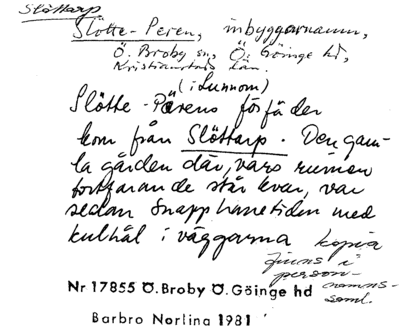 Slöttarp
Slötte-Peren, inbyggarnamn,
Ö. Broby sn, Ö. Göinge hd,
Kristianstads län.
(i Lunnom)
Slötte-Pärens förfäder
kom från Slöttarp. Den gam-
la gården där, vars ruiner
fortfarande står kvar, var
sedan Snapphanetiden med
kulhål i väggarna kopia
finns i
person-
namns-
saml.
Nr 17855 Ö.Broby Ö.Göinge hd
Barbro Norlina 1981